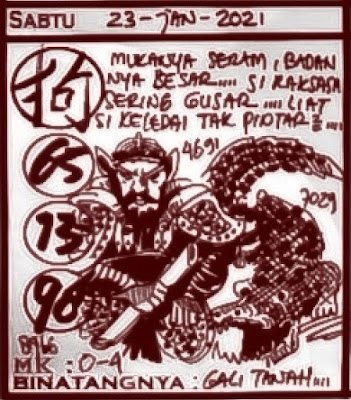 SABTU 23-JAN-2021
狗
MUKANYA SERAM, BADAN
NYA BESAR.... SI RAKSASA
SERING GUSAR .... LIAT
SI KELEDAI TAK PINTAR 2....
65
4691
7029
73
90
8946
MK : 0-4
BINATANGNYA : GALI TANAH....